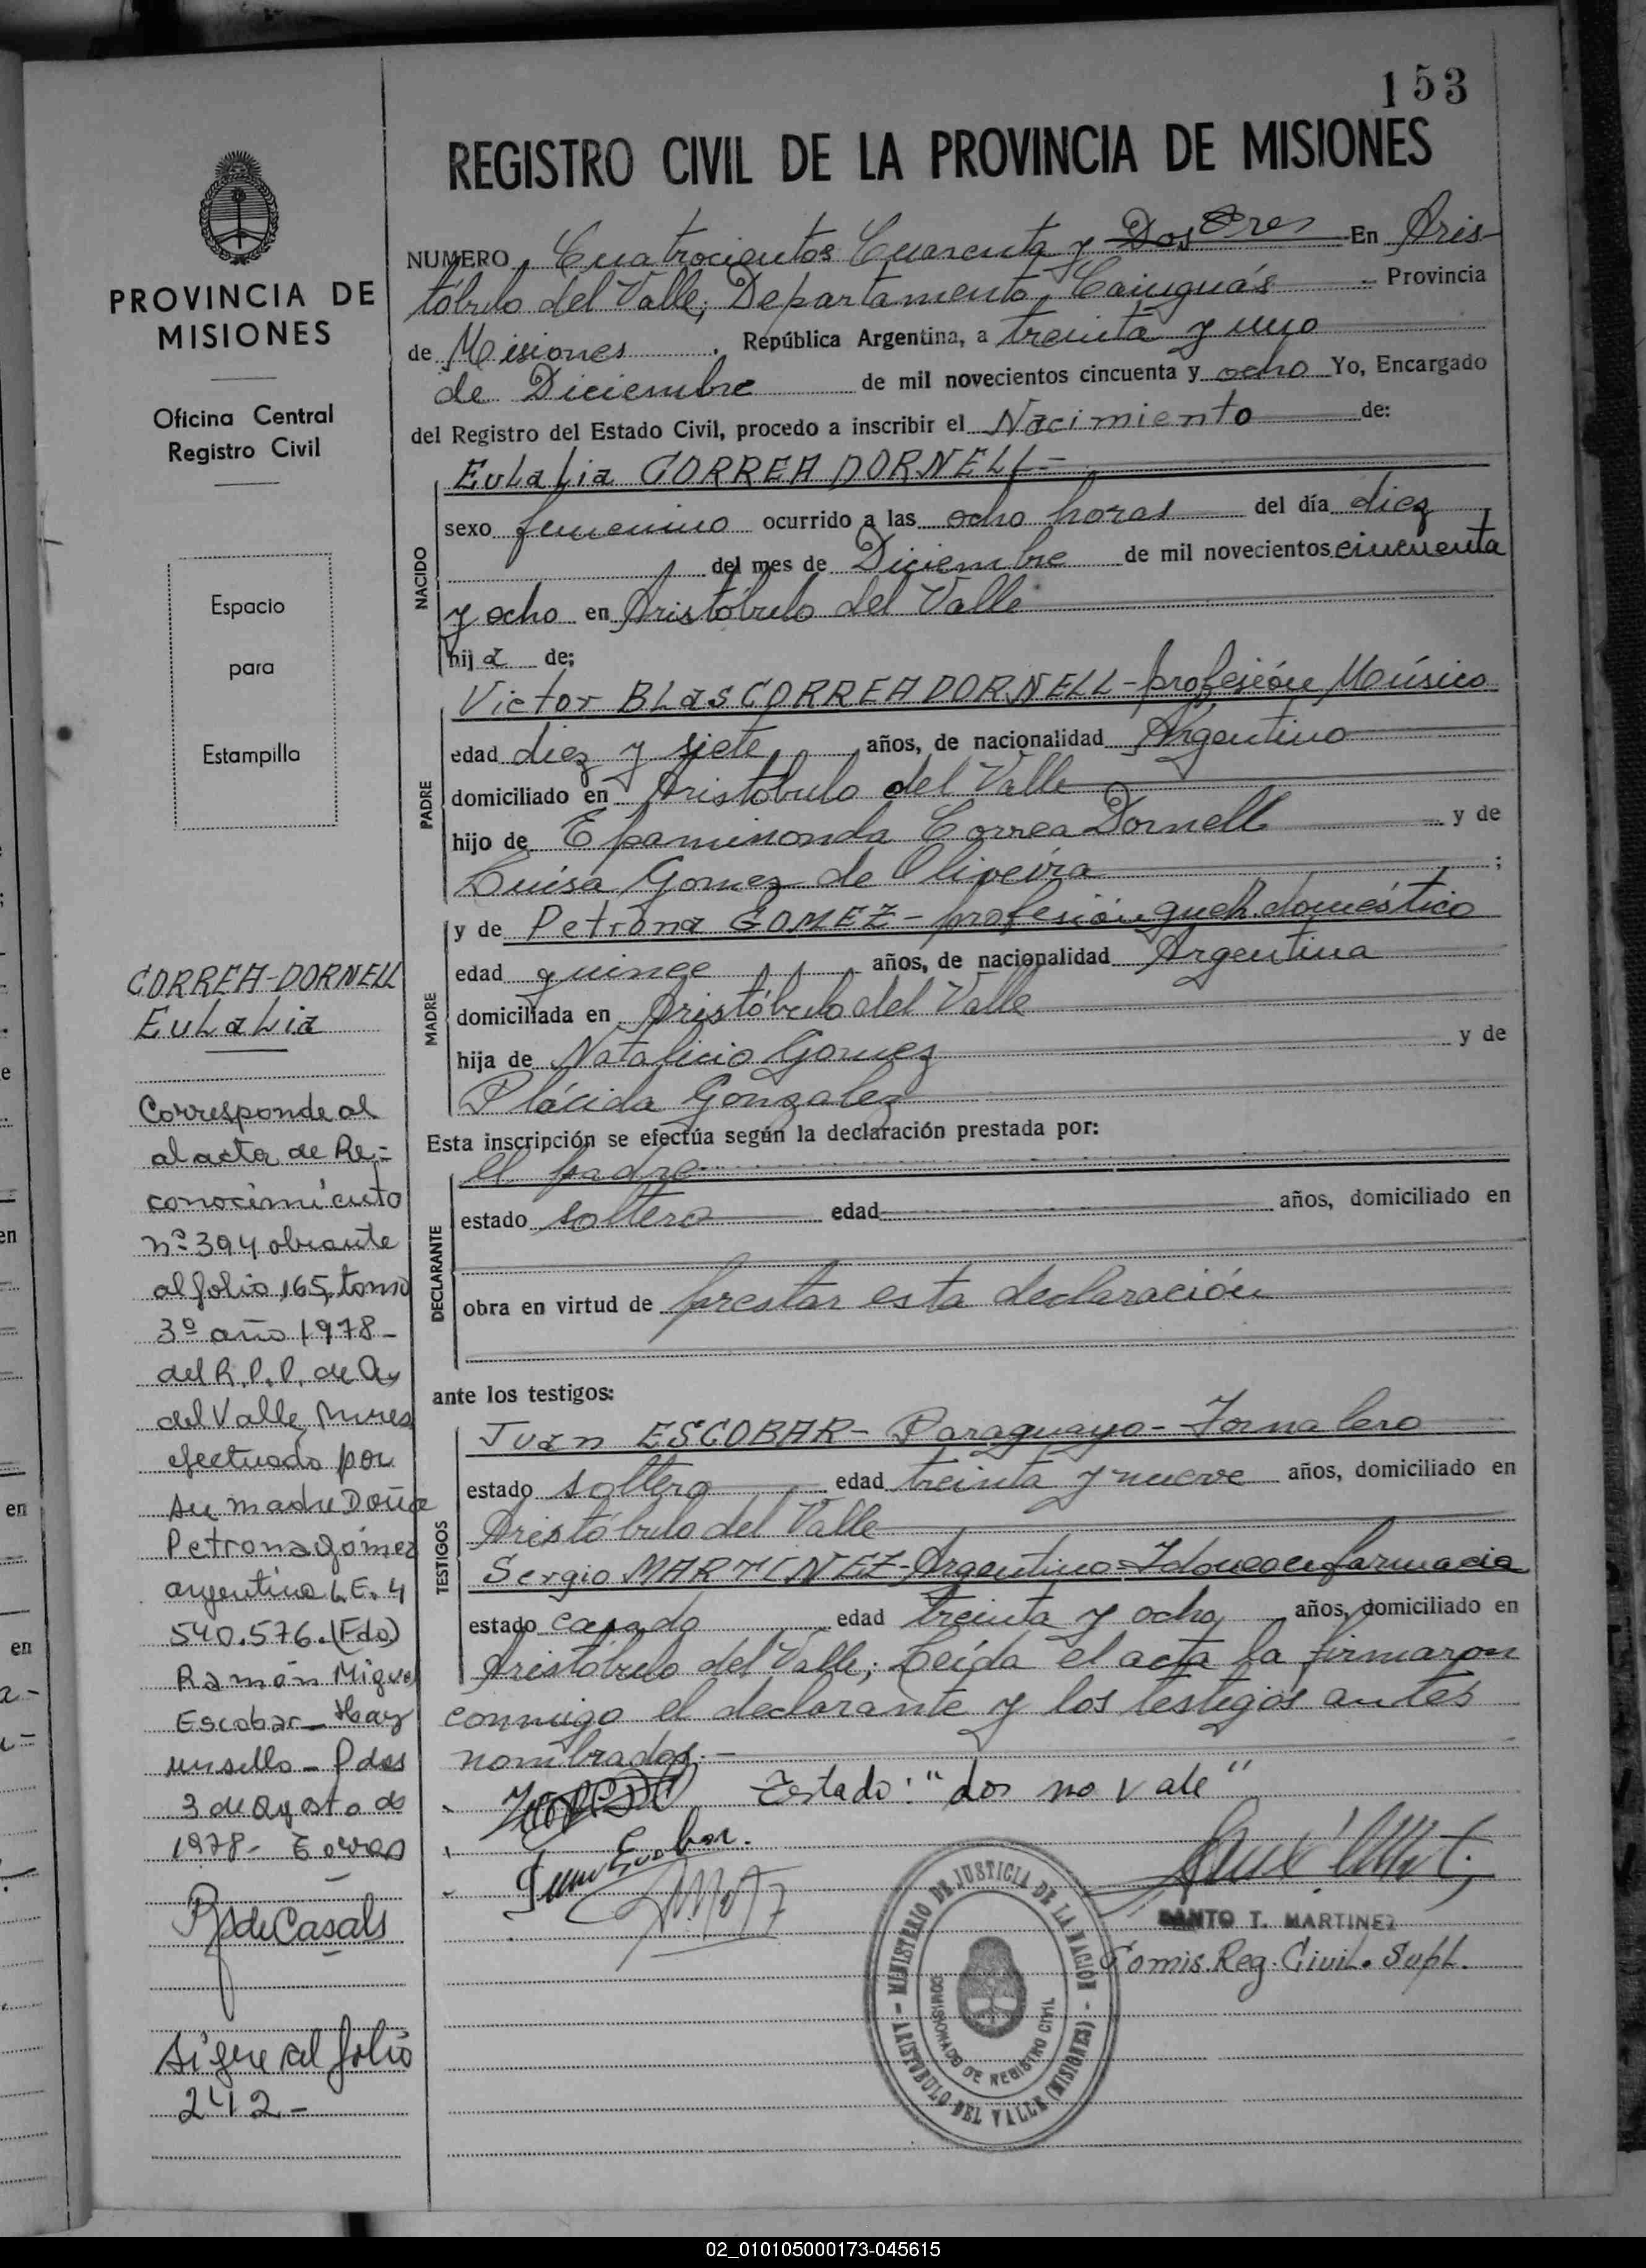 153
REGISTRO CIVIL DE LA PROVINCIA DE MISIONES
NUMERO Cuatrocientos Cuarenta y Dos Tres En Aris-
tóbulo del Valle, Departamento, Cainguás Provincia
de Misiones República Argentina, a treinta y uno
de Diciembre de mil novecientos cincuenta y ocho Yo, Encargado
del Registro del Estado Civil, procedo a inscribir el Nacimiento de:
NACIDO
Eulalia CORREA DORNELL-
sexo femenino ocurrido a las ocho horas del día diez
del mes de Diciembre de mil novecientos cincuenta
y ocho en Aristóbulo del Valle
hija de:
PADRE
Victor Blas CORREA DORNELL - profesión, Músico
edad diez y siete años, de nacionalidad Argentino
domiciliado en Aristóbulo del Valle
hijo de Epaminonda Correa Dornell y de
Luisa Gomez de Oliveira ;
MADRE
y de Petrona GOMEZ - profesión queh. doméstico
edad quince años, de nacionalidad Argentina
domiciliada en Aristóbulo del Valle
hija de Natalicio Gomez y de
Plácida Gonzalez
Esta inscripción se efectúa según la declaración prestada por:
DECLARANTE
el padre
estado soltero edad años, domiciliado en
obra en virtud de prestar esta declaración
ante los testigos:
TESTIGOS
Juan ESCOBAR - Paraguayo - Jornalero
estado soltero edad treinta y nueve años, domiciliado en
Aristóbulo del Valle
Sergio MARTINEZ - Argentino - Idoneo en farmacia
estado casado edad treinta y ocho años, domiciliado en
Aristóbulo del Valle; Leída el acta la firmaron
conmigo el declarante y los testigos antes
nombrados.-
Testado: "dos no vale"
Juan Escobar.
SANTO T. MARTINEZ
Comis. Reg. Civil. Supl.
- MINISTERIO DE JUSTICIA DE LA NACIÓN -
COMISIONADO DE REGISTRO CIVIL
ARISTOBULO DEL VALLE (MISIONES)
PROVINCIA DE
MISIONES
Oficina Central
Registro Civil
Espacio
para
Estampilla
CORREA-DORNELL
Eulalia
Corresponde al
al acta de Re-
conocimiento
nº 394 obrante
al folio 165, tomo
3º año 1978-
del R.P.P. de A.
del Valle, Mnes
efectuado por
su madre Doña
Petrona Gómez
argentina L.E. 4
540.576. (Fdo)
Ramón Miguel
Escobar - Hay
un sello - Pdas
3 de Agosto de
1978-
R de Casals
Sigue al folio
242-
02_010105000173-045615